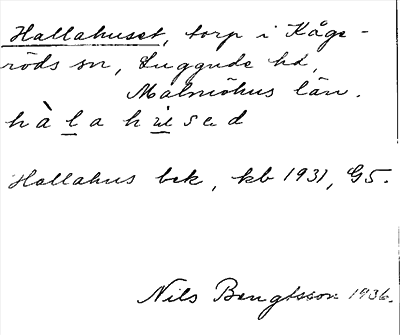 Hallahuset, torp i Kåge-
röds sn, Luggude hd,
Malmöhus län.
hàlahused
Hallahus bsk, kb 1931, G5.
Nils Bengtsson 1936.